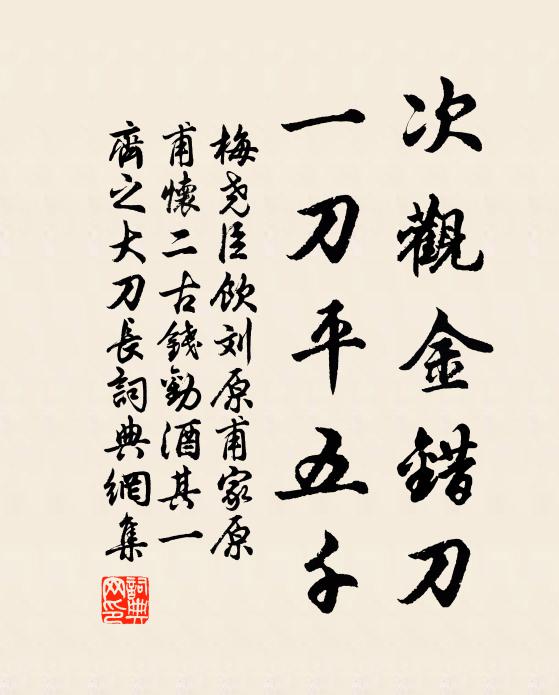 次觀金錯刀
一刀平五千
梅尧臣飲刘原甫家原
甫懷二古錢勸酒其一
齊之大刀長詞典網集
詞典网印